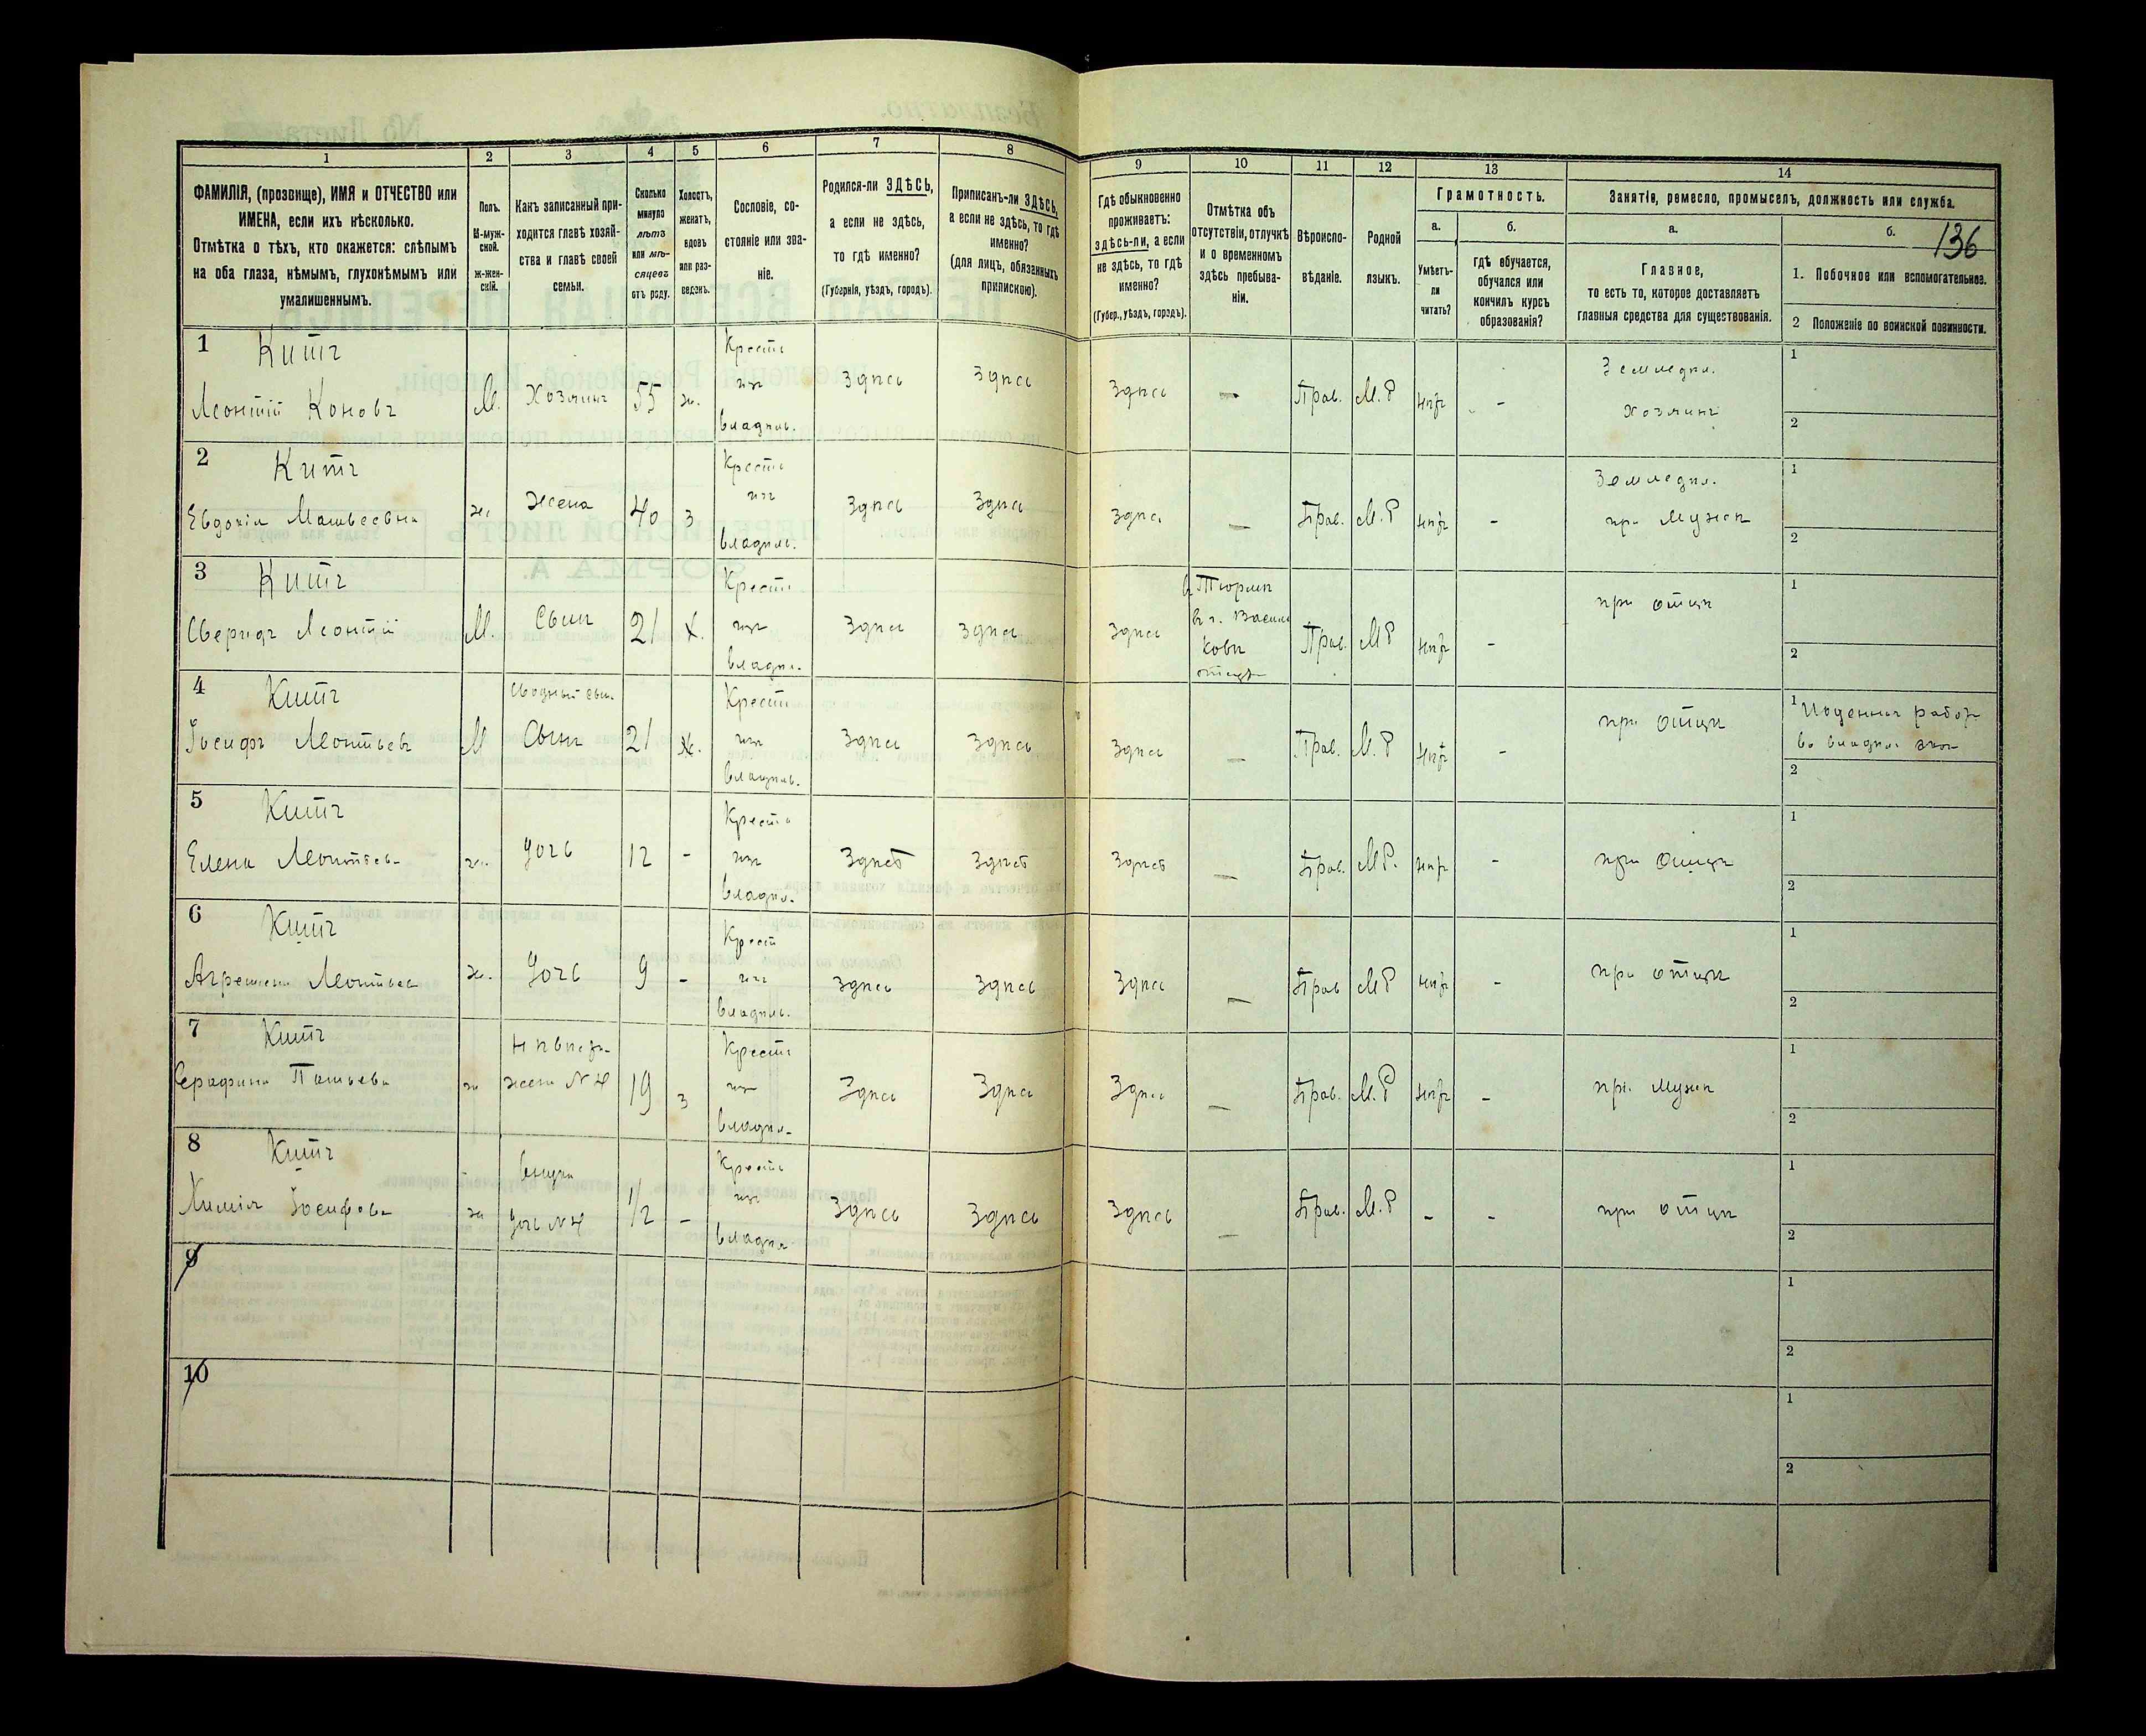 1
2
3
4
5
6
7
8
9
10
11
12
13
14
ФАМИЛІЯ, (прозвище), ИМЯ и ОТЧЕСТВО или
ИМЕНА, если ихъ нѣсколько.
Отмѣтка о тѣхъ, кто окажется: слѣпымъ
на оба глаза, нѣмымъ, глухонѣмымъ или
умалишеннымъ.
Полъ.
М-муж-
ской.
ж-жен-
скій.
Какъ записанный при-
ходится главѣ хозяй-
ства и главѣ своей
семьи.
Сколько
минуло
лѣтъ
или мѣ-
сяцевъ
отъ роду.
Холостъ,
женатъ,
вдовъ
или раз-
веденъ.
Сословіе, со-
стояніе или зва-
ніе.
Родился-ли ЗДѢСЬ,
а если не здѣсь,
то гдѣ именно?
(Губернія, уѣздъ, городъ).
Приписанъ-ли ЗДѢСЬ,
а если не здѣсь, то гдѣ
именно?
(для лицъ, обязанныхъ
припискою).
Гдѣ обыкновенно
проживаетъ:
здѣсь-ли, а если
не здѣсь, то гдѣ
именно?
(Губер., уѣздъ, городъ).
Отмѣтка объ
отсутствіи, отлучкѣ
и о временномъ
здѣсь пребыва-
ніи.
Вѣроиспо-
вѣданіе.
Родной
языкъ.
Грамотность.
а.
Умѣетъ-
ли
читать?
б.
гдѣ обучается,
обучался или
кончилъ курсъ
образованія?
Занятіе, ремесло, промыселъ, должность или служба.
а.
Главное,
то есть то, которое доставляетъ
главныя средства для существованія.
б.
136
1. Побочное или вспомогательное.
2 Положеніе по воинской повинности.
1 Китъ
Леонтій Коновъ
М.
Хозяинъ
55
ж.
Крестя
изъ
владѣль.
Здѣсь
Здѣсь
Здѣсь
—
Прав.
М.Р
нѣтъ
-
Земледѣл.
Хозяинъ
1
2
2 Китъ
Евдокія Матвеевна
ж.
Жена
40
з
Крестя
изъ
владѣль.
Здѣсь
Здѣсь
Здѣсь
—
Прав.
М.Р
нѣтъ
-
Земледѣл.
при Мужѣ
1
2
3 Китъ
Леонтій
М.
Сынъ
21
Х.
Крестя
изъ
владѣл.
Здѣсь
Здѣсь
Здѣсь
в Тюрмѣ
в г. Василь
ковѣ
Прав.
МР
нѣтъ
-
при отцѣ
1
2
4 Китъ
Іосифъ Леонтьевъ
М
Сводный сын.
Сынъ
21
ж.
Крестя
изъ
владѣль.
Здѣсь
Здѣсь
Здѣсь
—
Прав.
М.Р
нѣтъ
-
при отцѣ
1
2
5 Китъ
Елена Леонтьев-
ж.
Дочь
12
-
Крестя
изъ
владѣл.
Здѣсь
Здѣсь
Здѣсь
—
Прав.
МР.
нѣтъ
-
при отцѣ
1
2
6 Китъ
Леонтьев
ж.
Дочь
9
-
Крест
изъ
владѣль.
Здѣсь
Здѣсь
Здѣсь
—
Прав
МР
нѣтъ
-
при отцѣ
1
2
7 Китъ
ж
Нѣвѣст-
жена №4
19
з
Крестя
изъ
владѣл-
Здѣсь
Здѣсь
Здѣсь
—
Прав.
М.Р
нѣтъ
-
при мужѣ
1
2
8 Китъ
Іосифова
ж
внука
дочь №4
1/2
-
Крестя
изъ
владѣл
Здѣсь
Здѣсь
Здѣсь
—
Прав.
М.Р
-
-
при отцѣ
1
2
9
1
2
10
1
2